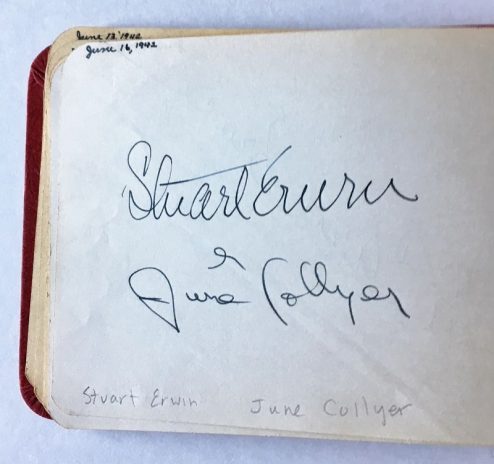 June 13 1942
June 16, 1942
Stuart Erwin
&
June Collyer
Stuart Erwin June Collyer